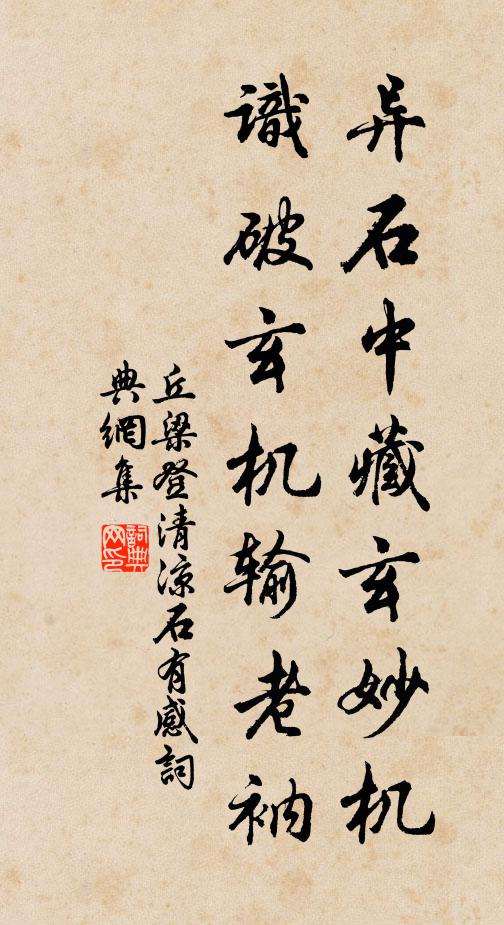 异石中藏玄妙机
識破玄机输老衲
丘梁登清凉石有感詞
典網集
詞典网印